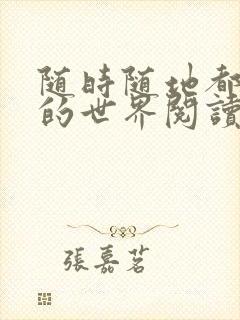 随時随地都
的世界閱讀
張嘉茗